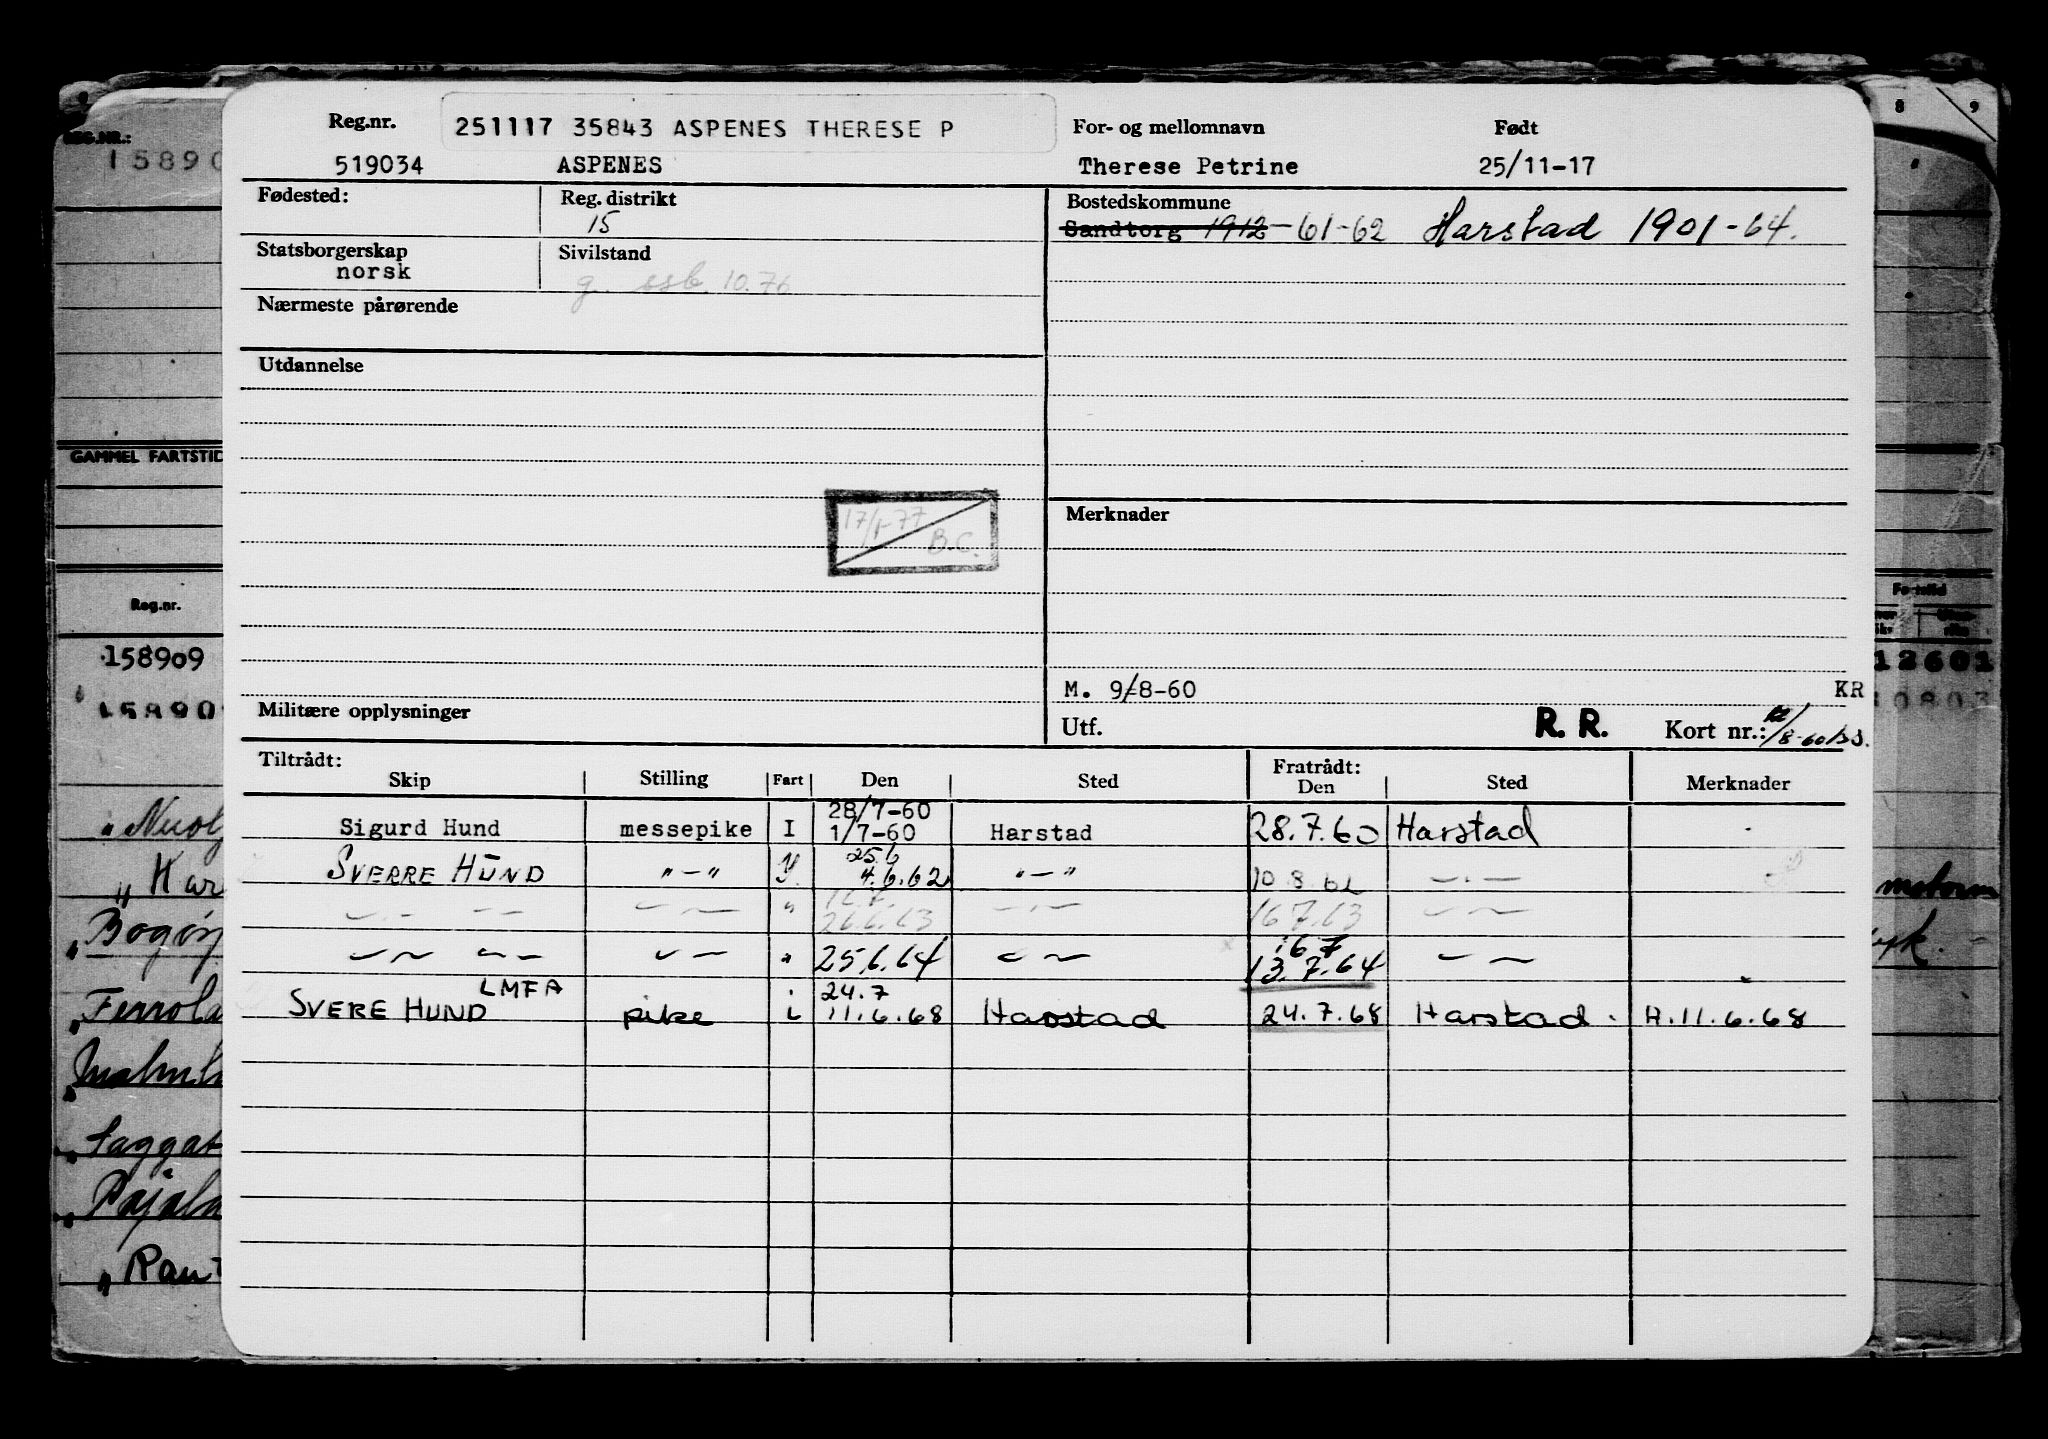 Reg.nr. 251117 35843 ASPENES THERESE P For- og mellomnavn Født
519034 ASPENES Therese Petrine 25/11-17
Fødested: Reg. distrikt Bostedskommune
15 Sandtorg 1912-61-62 Harstad 1901-64.
Statsborgerskap Sivilstand
norsk g. ssb. 10.76
Nærmeste pårørende
Utdannelse
17/1-77 B.C.
Merknader
M. 9/8-60 KR
Militære opplysninger Utf. R. R. Kort nr.:
Tiltrådt: Fratrådt:
Skip Stilling Fart Den Sted Den Sted Merknader
28/7-60
Sigurd Hund messepike I 1/7-60 Harstad 28.7.60 Harstad
25.6
SVERRE HUND "-" 4.6.62 "-" 10.8.62 -"-
-"- -"- " 26.6.63 -"- 16.7.63 -"-
16.7
-"- -"- " 25.6.64 -"- 13.7.64 -"-
LMFA 24.7
SVERE HUND pike i 11.6.68 Harstad 24.7.68 Harstad. A.11.6.68
REG.NR.:
15890
GAMMEL FARTSTID
Reg.nr.
158909
15890
" Kar
Ferrola
Malmb
Saggat
Pajala
8 9
Fartstid
12601
10803